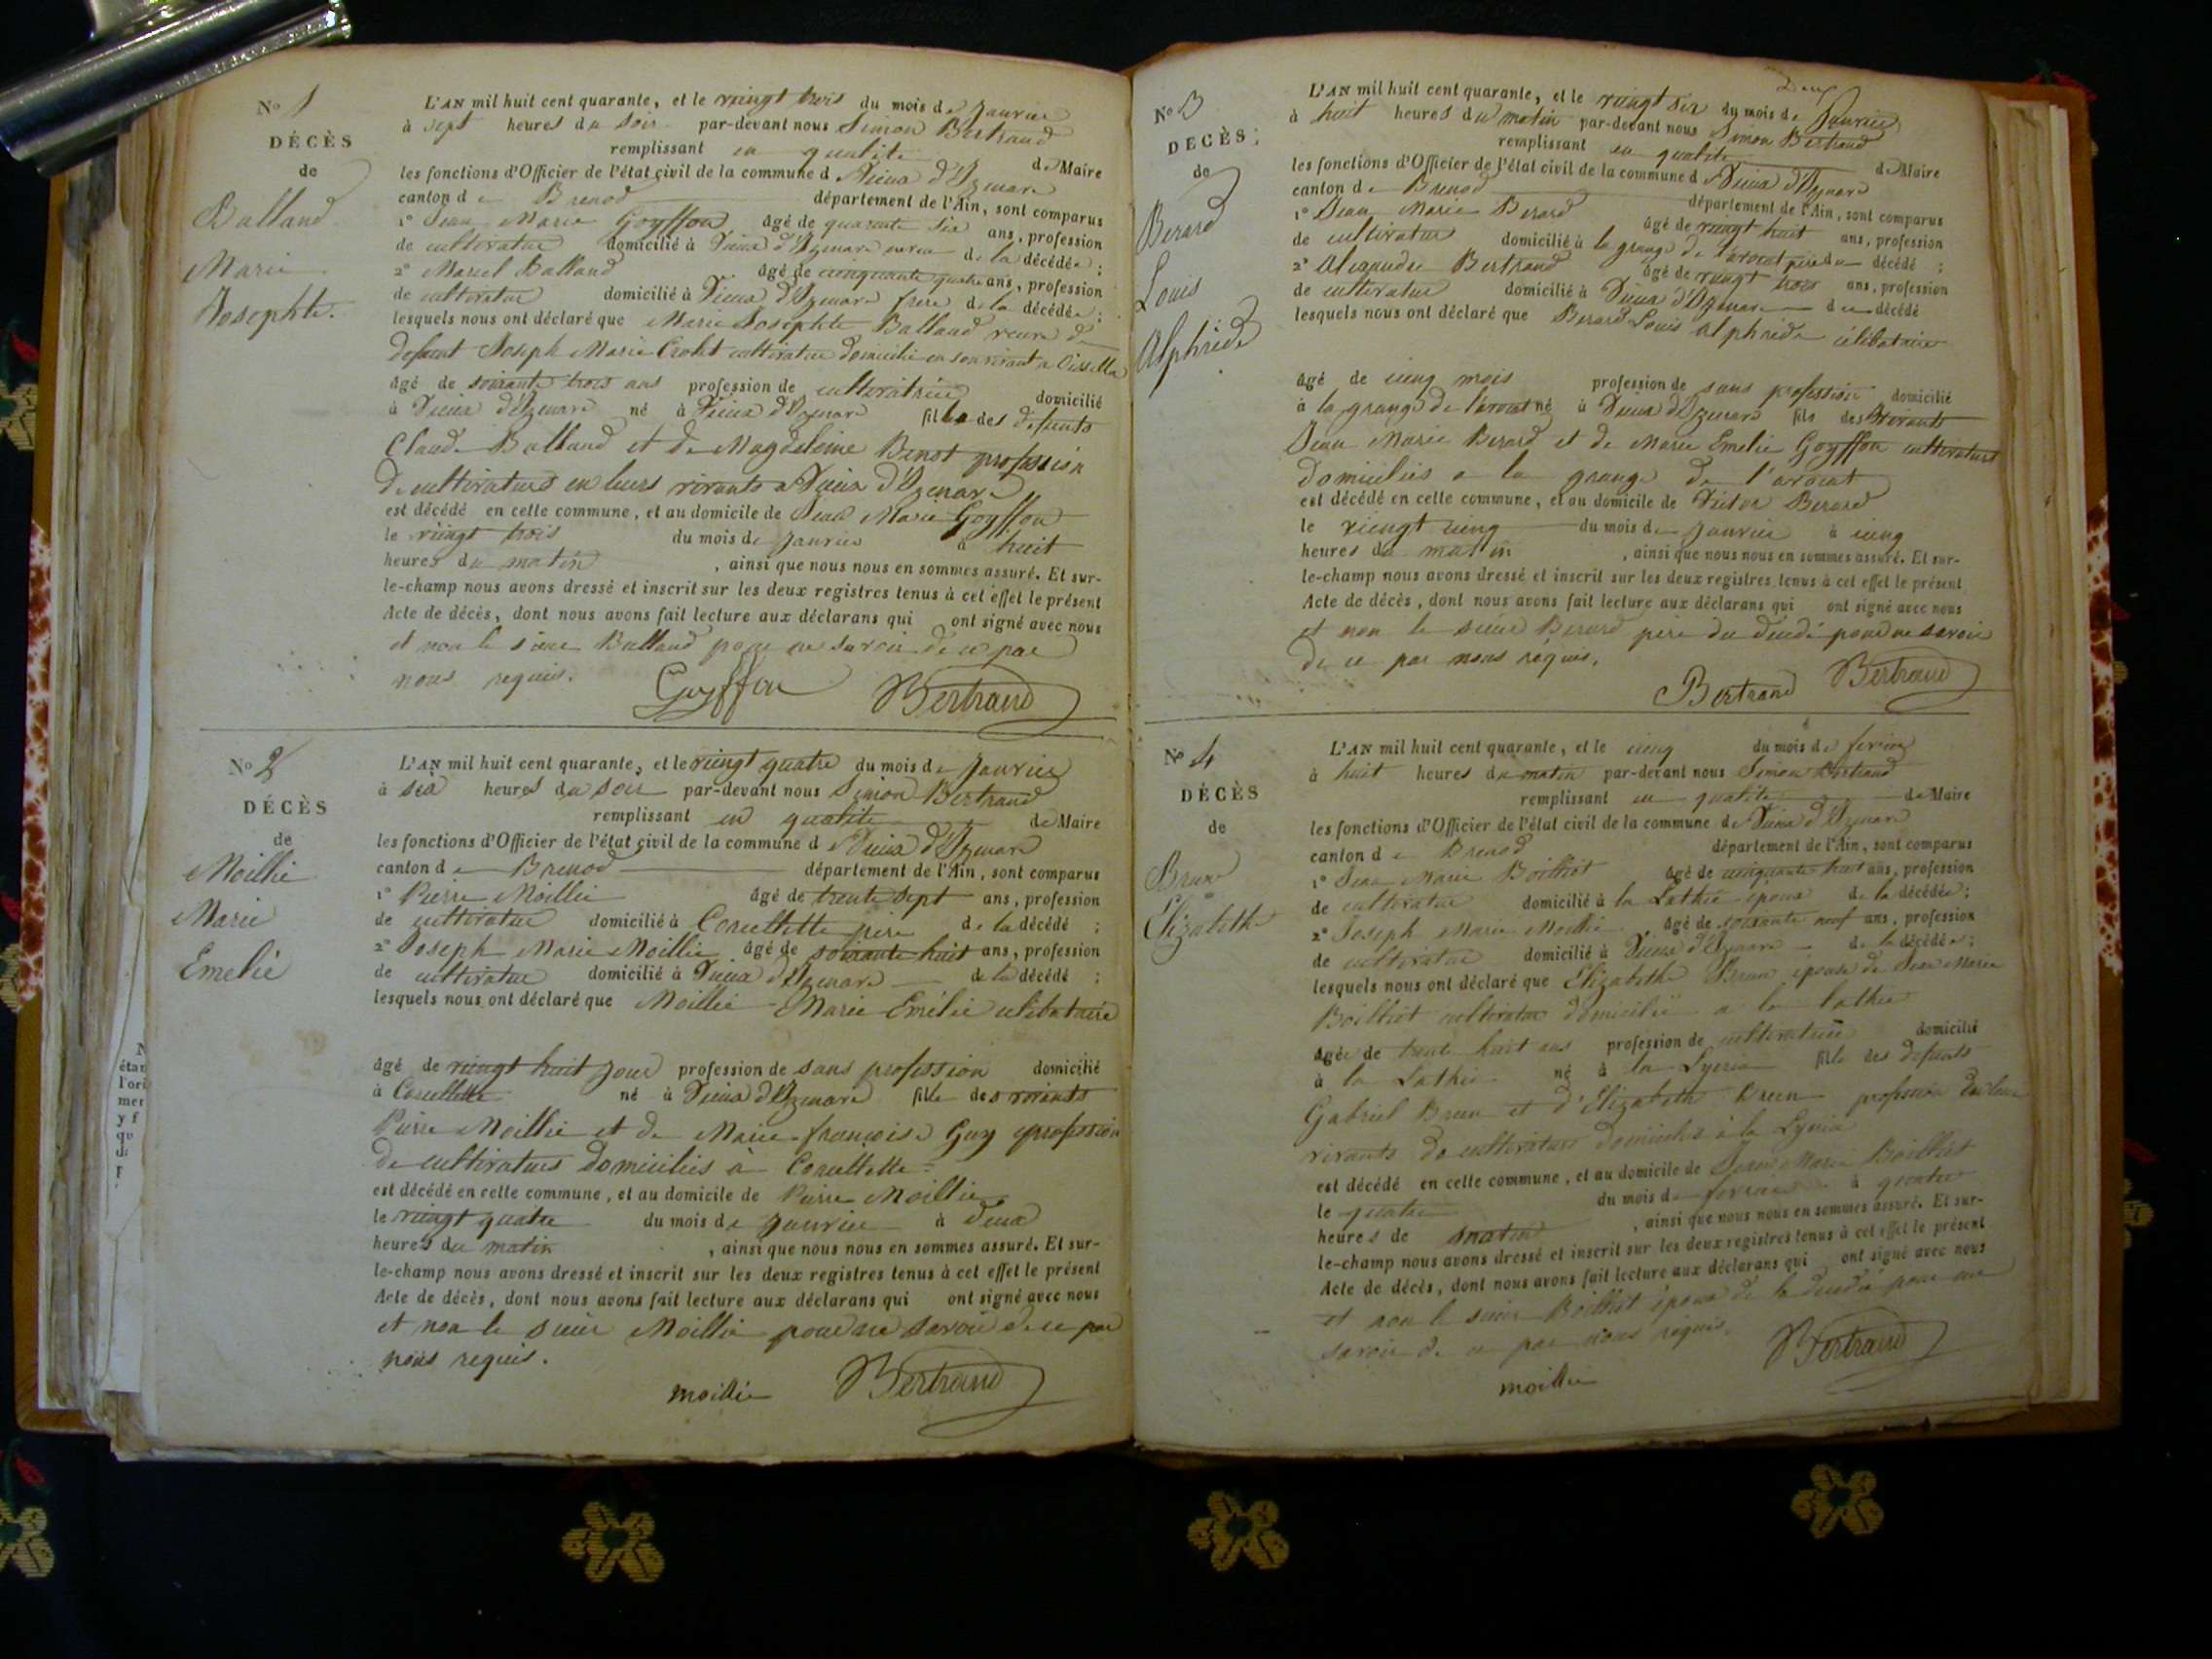 No 1
DÉCÈS
de
Balland
Marie
Josephte.
L'AN mil huit cent quarante, et le vingt trois du mois de Janvier
à sept heures du soir par-devant nous Simon Bertrand
remplissant en qualité de Maire
les fonctions d'Officier de l'état civil de la commune d Vieux d'Izenave
canton de Brenod département de l'Ain, sont comparus
1° Jean Marie Goyffon âgé de quarante six ans, profession
de cultivateur domicilié à Vieux d'Izenave de la décédée;
2° Marcel Balland âgé de cinquante quatre ans, profession
de cultivateur domicilié à Vieux d'Izenave frère de la décédée;
lesquels nous ont déclaré que Marie Josephte Balland veuve de
defunt Joseph Marie Crolet cultivateur domicilié en son vivant a
âgé de soixante trois ans profession de cultivatrice domicilié
à Vieux d'Izenave né à Vieux d'Izenave fille des défunts
Claude Balland et de Magdeleine Benot profession
de cultivateurs en leurs vivants a Vieux d'Izenave
est décédé en cette commune, et au domicile de Jean Marie Goyffon
le vingt trois du mois de Janvier à huit
heures du matin, ainsi que nous nous en sommes assuré. Et sur-
le-champ nous avons dressé et inscrit sur les deux registres tenus à cet effet le présent
Acte de décès, dont nous avons fait lecture aux déclarans qui ont signé avec nous
et non le sieur Balland pour ne savoir de ce par
nous requis.
Goyffon Bertrand
No 2
DÉCÈS
de
Moillie
Marie
Emelie
L'AN mil huit cent quarante, et le vingt quatre du mois de Janvier
à six heures du soir par-devant nous Simon Bertrand
remplissant en qualité de Maire
les fonctions d'Officier de l'état civil de la commune d Vieux d'Izenave
canton de Brenod département de l'Ain, sont comparus
1° Pierre Moillie âgé de trente sept ans, profession
de cultivateur domicilié à Corcellette père de la décédé;
2° Joseph Marie Moillie âgé de soixante huit ans, profession
de cultivateur domicilié à Vieux d'Izenave de la décédé;
lesquels nous ont déclaré que Moillie Marie Emélie célibataire
âgé de vingt huit jour profession de sans profession domicilié
à Corcellette né à Vieux d'Izenave fille des vivants
Pierre Moillie et de Marie françoise Guy profession
de cultivateurs domiciliés à Corcellette
est décédé en cette commune, et au domicile de Pierre Moillie
le vingt quatre du mois de Janvier à deux
heures du matin, ainsi que nous nous en sommes assuré. Et sur-
le-champ nous avons dressé et inscrit sur les deux registres tenus à cet effet le présent
Acte de décès, dont nous avons fait lecture aux déclarans qui ont signé avec nous
et non le sieur Moillie pour ne savoir de ce par
nous requis.
moillie Bertrand
No 3
DÉCÈS;
de
Berard
Louis
Alphrède
Deux
L'AN mil huit cent quarante, et le vingt six du mois de Janvier
à huit heures du matin par-devant nous Simon Bertrand
remplissant en qualité de Maire
les fonctions d'Officier de l'état civil de la commune d Vieux d'Izenave
canton de Brenod département de l'Ain, sont comparus
1° Jean Marie Berard âgé de vingt huit ans, profession
de cultivateur domicilié à la grange de l'avocat père du décédé;
2° Alexandre Bertrand âgé de vingt trois ans, profession
de cultivateur domicilié à Vieux d'Izenave du décédé
lesquels nous ont déclaré que Berard Louis Alphrede célibataire
âgé de cinq mois profession de sans profession domicilié
à la grange de l'avocat né à Vieux d'Izenave fils des vivants
Jean Marie Berard et de Marie Emelie Goyffon cultivateurs
domiciliés a la grange de l'avocat
est décédé en cette commune, et au domicile de Victor Berard
le vingt cinq du mois de Janvier à cinq
heures du matin, ainsi que nous nous en sommes assuré. Et sur-
le-champ nous avons dressé et inscrit sur les deux registres tenus à cet effet le présent
Acte de décès, dont nous avons fait lecture aux déclarans qui ont signé avec nous
et non le sieur Berard père du décédé pour ne savoir
de ce par nous requis.
Bertrand Bertrand
No 4
DÉCÈS
de
Brun
Elizabethe
L'AN mil huit cent quarante, et le cinq du mois de fevrier
à huit heures du matin par-devant nous Simon Bertrand
remplissant en qualité de Maire
les fonctions d'Officier de l'état civil de la commune de Vieux d'Izenave
canton de Brenod département de l'Ain, sont comparus
1° Jean Marie Boilliot âgé de cinquante huit ans, profession
de cultivateur domicilié à la Lathie époux de la décédée;
2° Joseph Marie Moillie âgé de soixante neuf ans, profession
de cultivateur domicilié à Vieux d'Izenave de la décédée;
lesquels nous ont déclaré que Elizabethe Brun épouse de Jean Marie
Boilliot cultivateur domicilié a la lathie
âgée de trente huit ans profession de cultivatrice domicilié
à la Lathie né à la Lyria fille des défunts
Gabriel Brun et d'Elizabeth Brun profession en leur
vivants de cultivateurs domiciliés à la Lyria
est décédé en cette commune, et au domicile de Jean Marie Boilliot
le quatre du mois de fevrier à quatre
heures de matin, ainsi que nous nous en sommes assuré. Et sur-
le-champ nous avons dressé et inscrit sur les deux registres tenus à cet effet le présent
Acte de décès, dont nous avons fait lecture aux déclarans qui ont signé avec nous
et non le sieur Boilliot époux de la décédé pour ne
savoir de ce par nous requis.
moillie Bertrand